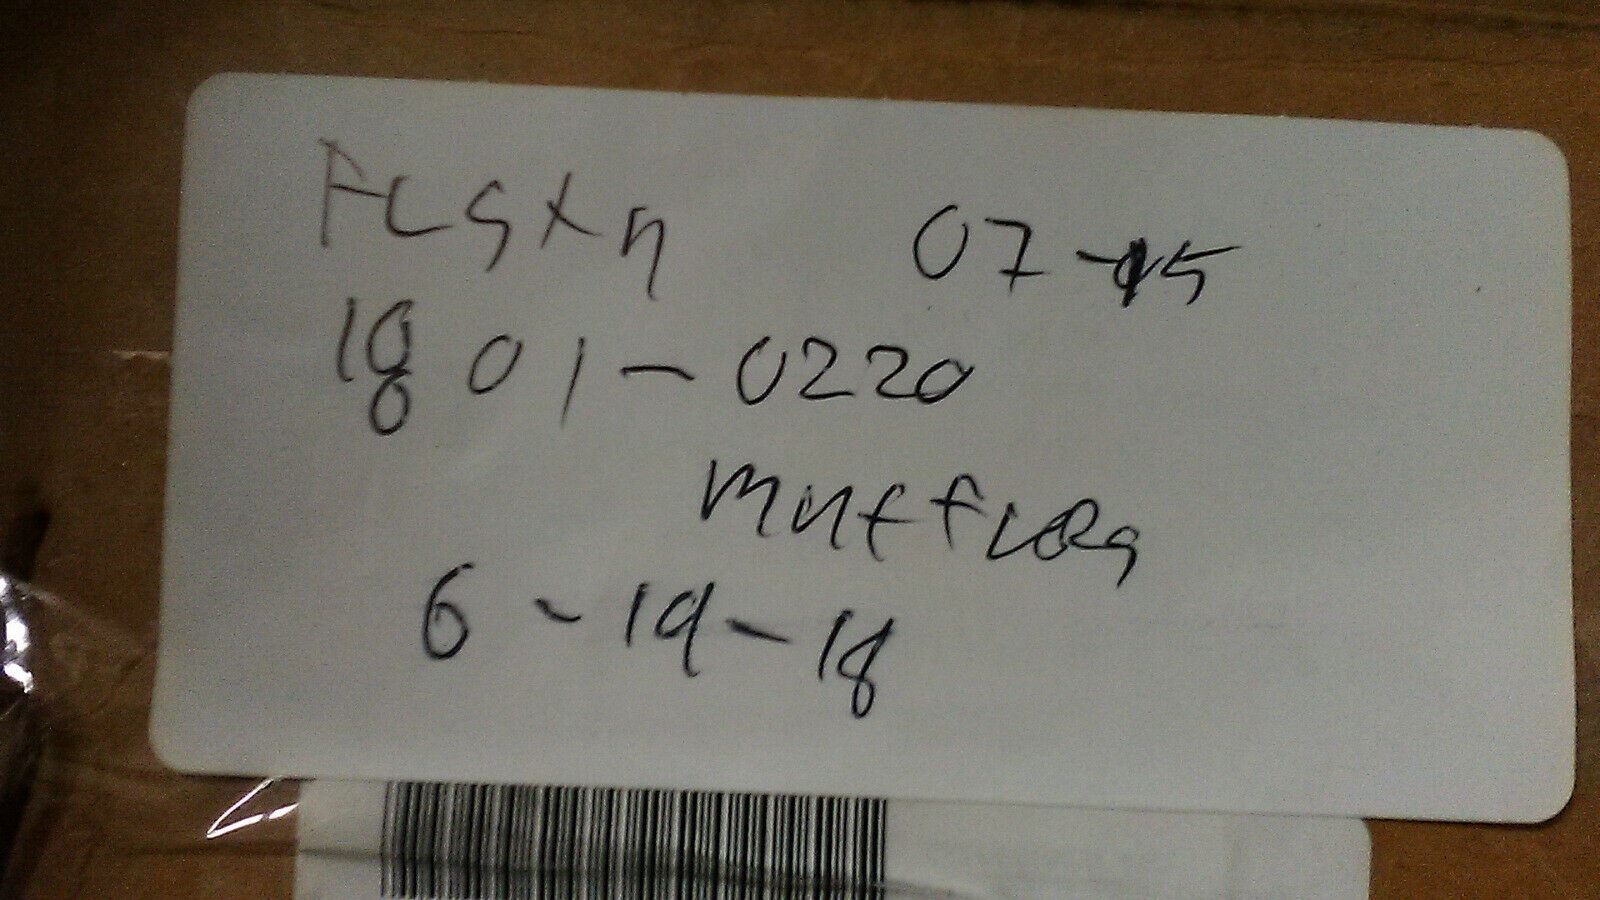 FLSTN 07-15
1801-0220
mufflers
6-19-18